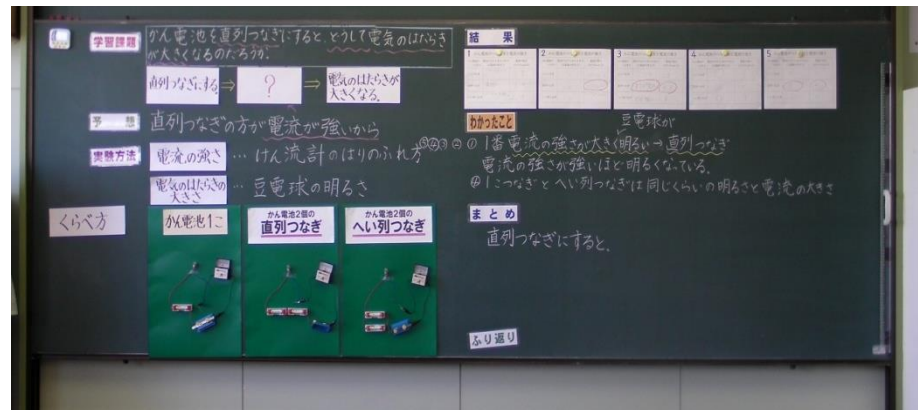 学習課題
かん電池を直列つなぎにすると、どうして電気のはたらき
が大きくなるのだろうか。
直列つなぎにする。⇒ ? ⇒ 電気のはたらきが
大きくなる。
予想
直列つなぎの方が電流が強いから
実験方法
電流の強さ … けん流計のはりのふれ方
電気のはたらきの
大きさ … 豆電球の明るさ
くらべ方
かん電池1こ
かん電池2個の
直列つなぎ
かん電池2個の
へい列つなぎ
結果
1
2
3
4
5
わかったこと
豆電球が
① 1番電流の強さが大きく明るい→直列つなぎ
電流の強さが強いほど明るくなっている。
④1こつなぎとへい列つなぎは同じくらいの明るさと電流の大きさ
まとめ
直列つなぎにすると、
ふり返り